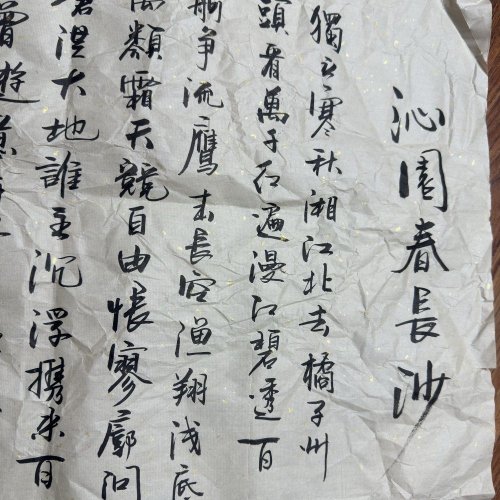 沁園春長沙
獨立寒秋湘江北去橘子州
頭看萬山红遍漫江碧透百
舸争流鷹击長空渔翔浅底
萬類霜天競自由悵寥廓問
蒼茫大地誰主沉浮携来百
曾遊